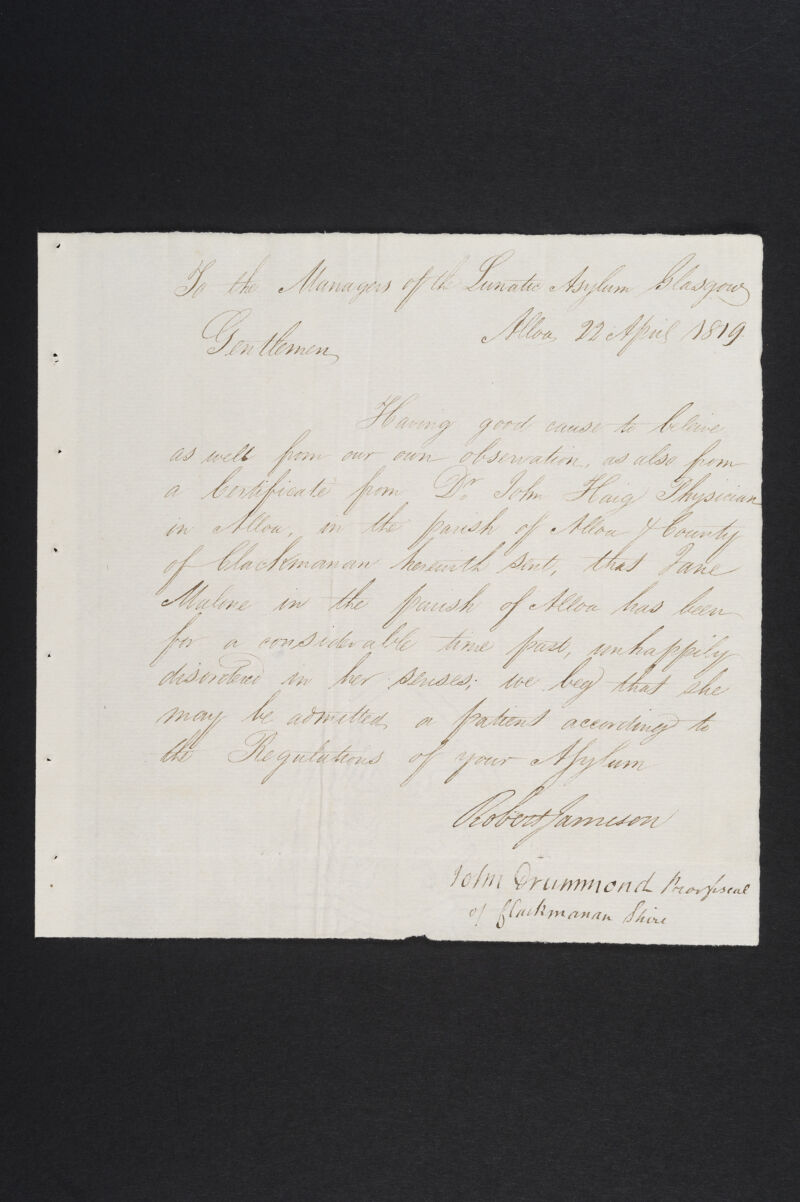 To the Managers of the Lunatic Asylum Glasgow
Alloa 22 April 1819
Gentlemen
Having good cause to beleive
as well from our own observation, as also from
a Certificate from Dr. John Haig Physician
in Alloa, in the parish of Alloa & County
of Clackmanan herewith sent, that Jane
Malone in the parish of Alloa has been
for a considerable time past, unhappily
disordered in her senses; we beg that she
may be admitted a patient according to
the Regulations of your Asylum
Robert Jameson
John Drummond Procrfiscal
of Clackmanan Shire